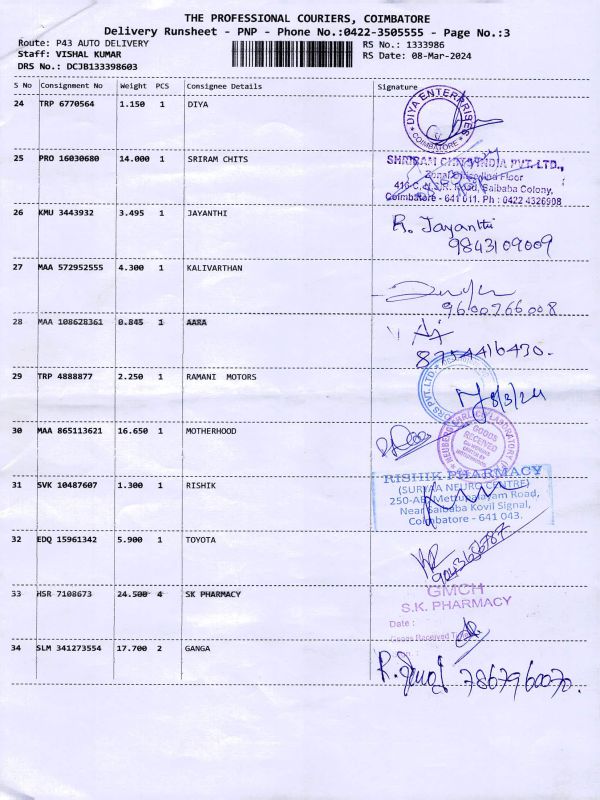 THE PROFESSIONAL COURIERS, COIMBATORE
Delivery Runsheet - PNP - Phone No.:0422-3505555 - Page No.:3
Route: P43 AUTO DELIVERY RS No.: 1333986
Staff: VISHAL KUMAR RS Date: 08-Mar-2024
DRS No.: DCJB133398603
S No Consignment No Weight PCS Consignee Details Signature
24 TRP 6770564 1.150 1 DIYA
DIYA ENTERPRISES
COIMBATORE
25 PRO 16030680 14.000 1 SRIRAM CHITS
SHRIRAM CHITS INDIA PVT. LTD.,
Floor
Saibaba Colony,
Coimbatore - 641 011. Ph : 0422 4326908
26 KMU 3443932 3.495 1 JAYANTHI
R. Jayanthi
9843109009
27 MAA 572952555 4.300 1 KALIVARTHAN
9600766008
28 MAA 108628361 0.845 1 AARA
8754416430.
29 TRP 4888877 2.250 1 RAMANI MOTORS
PVT. LTD.
8/3/24
30 MAA 865113621 16.650 1 MOTHERHOOD
LABORATORY
GOODS
RECEIVED
31 SVK 10487607 1.300 1 RISHIK
RISHIK PHARMACY
(SURYAA NEURO CENTRE)
Mettupalayam Road,
Near Saibaba Kovil Signal,
Coimbatore - 641 043.
32 EDQ 15961342 5.900 1 TOYOTA
33 HSR 7108673 24.500 4 SK PHARMACY
GMCH
S.K. PHARMACY
Date :
Goods Received
34 SLM 341273554 17.700 2 GANGA
7867960070.